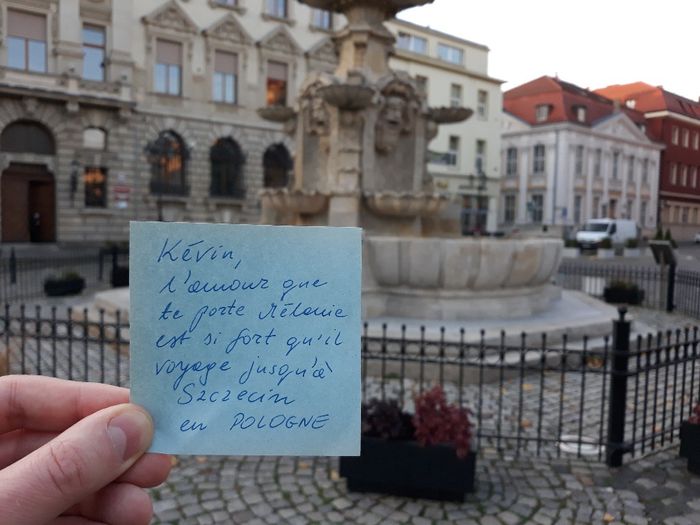 Kévin,
l'amour que
te porte Mélanie
est si fort qu'il
voyage jusqu'à
Szczecin
en POLOGNE